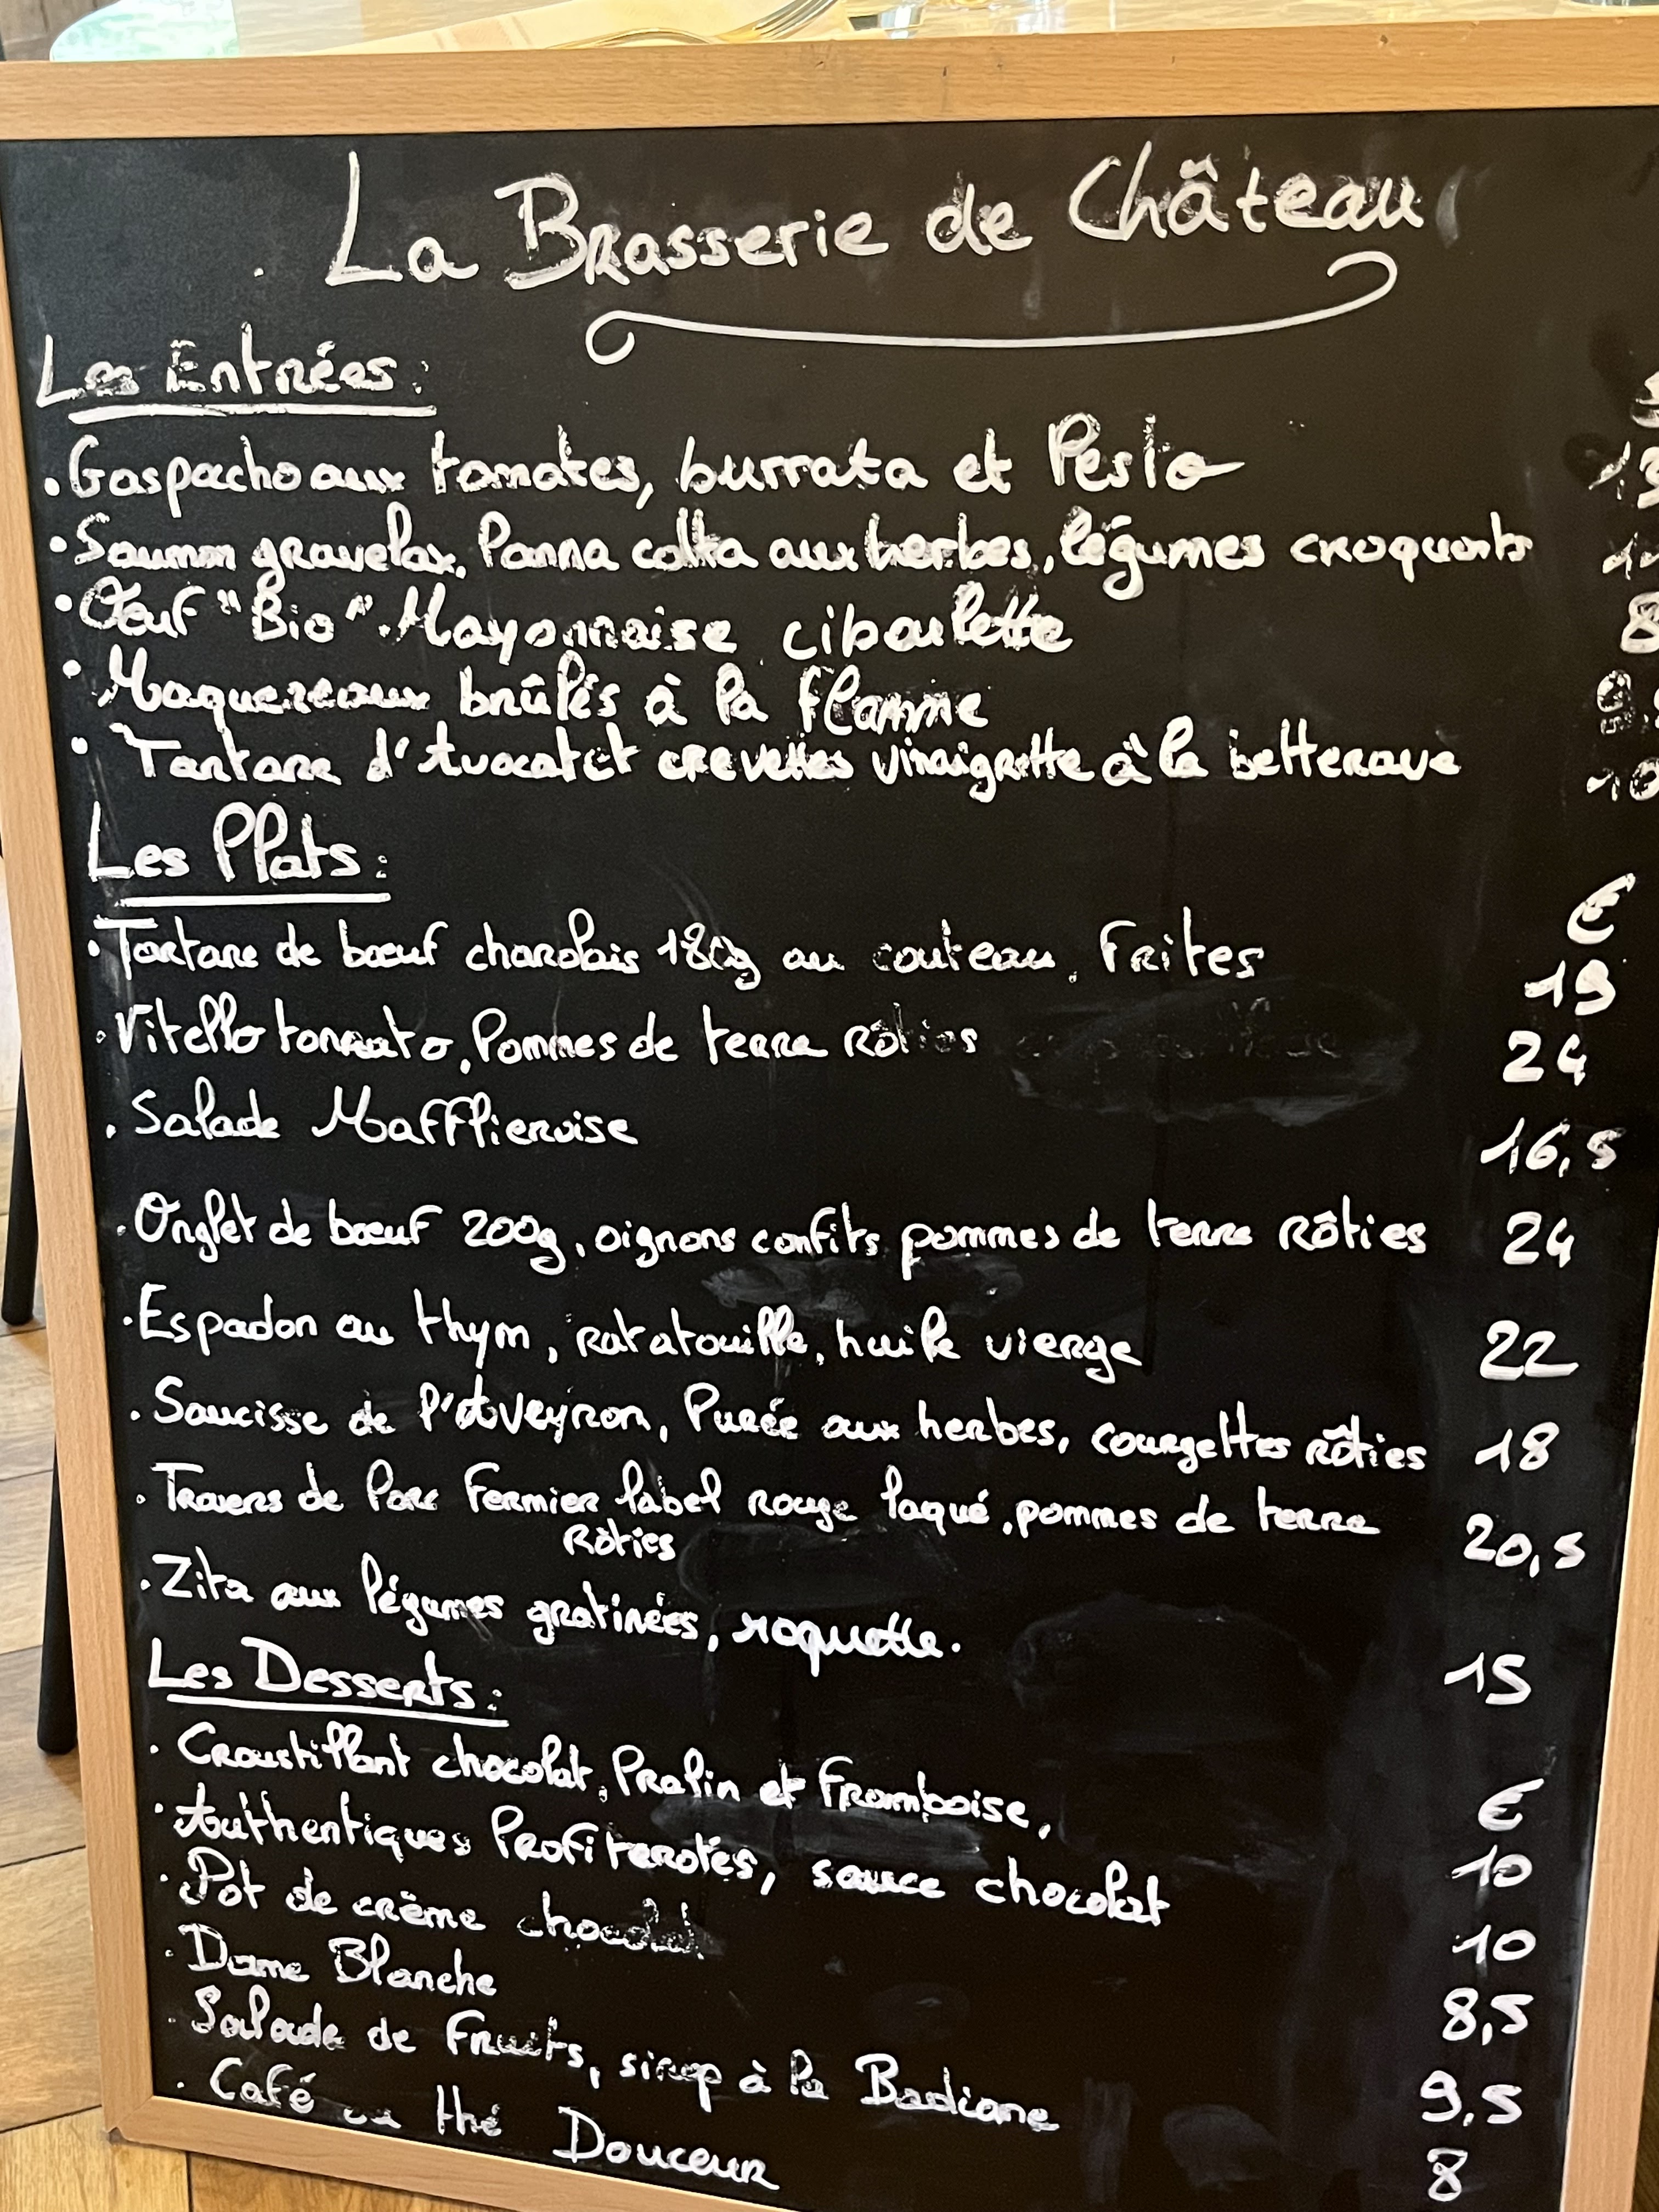 La Brasserie de Château
Les Entrées :
. Gaspacho aux tomates, burrata et Pesto
. Saumon gravelax, Panna cotta aux herbes, légumes croquants
. Œuf "Bio" Mayonnaise ciboulette 8
. Maquereaux brûlés à la flamme
. Tartare d'Avocat et crevettes vinaigrette à la betterave 10
Les Plats :
€
. Tartare de bœuf charolais 180g au couteau, Frites 19
. Vitello tonnato, Pommes de terre Rôties 24
. Salade Maffliervoise 16,5
. Onglet de bœuf 200g, oignons confits pommes de terre Rôties 24
. Espadon au thym, ratatouille, huile vierge 22
. Saucisse de l'Aveyron, Purée aux herbes, courgettes rôties 18
. Travers de Porc Fermier label rouge laqué, pommes de terre 20,5
Rôties
. Zita aux légumes gratinées, roquette. 15
Les Desserts :
€
. Croustillant chocolat, Pralin et Framboise, 10
. Authentiques Profiteroles, sauce chocolat 10
. Pot de crème chocolat 8,5
. Dame Blanche 9,5
. Salade de Fruits, sirop à la Badiane 8
. Café ou thé Douceur